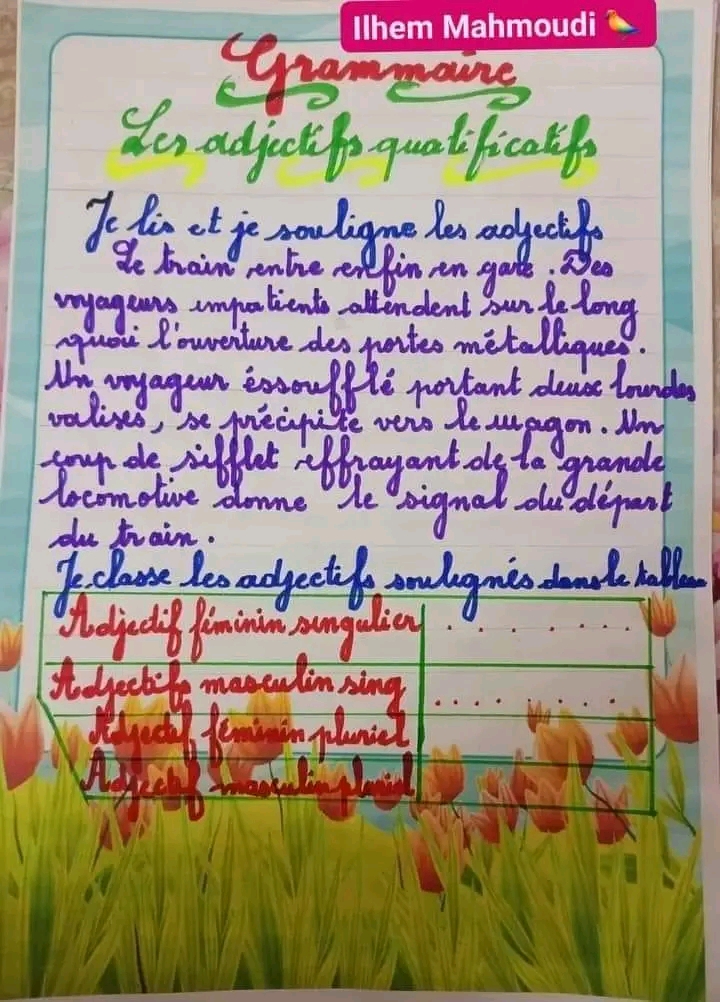 Ilhem Mahmoudi
Grammaire
Les adjectifs qualificatifs
Je lis et je souligne les adjectifs
Le train entre enfin en gare. Des
voyageurs impatients attendent sur le long
quai l'ouverture des portes métalliques.
Un voyageur éssoufflé portant deux lourdes
valises, se précipite vers le wagon. Un
coup de sifflet effrayant de la grande
locomotive donne le signal du départ
du train.
Je classe les adjectifs soulignés dans le tableau
Adjectif féminin singulier ........
Adjectifs masculin sing .........
Adjectif féminin pluriel
Adjectif masculin pluriel